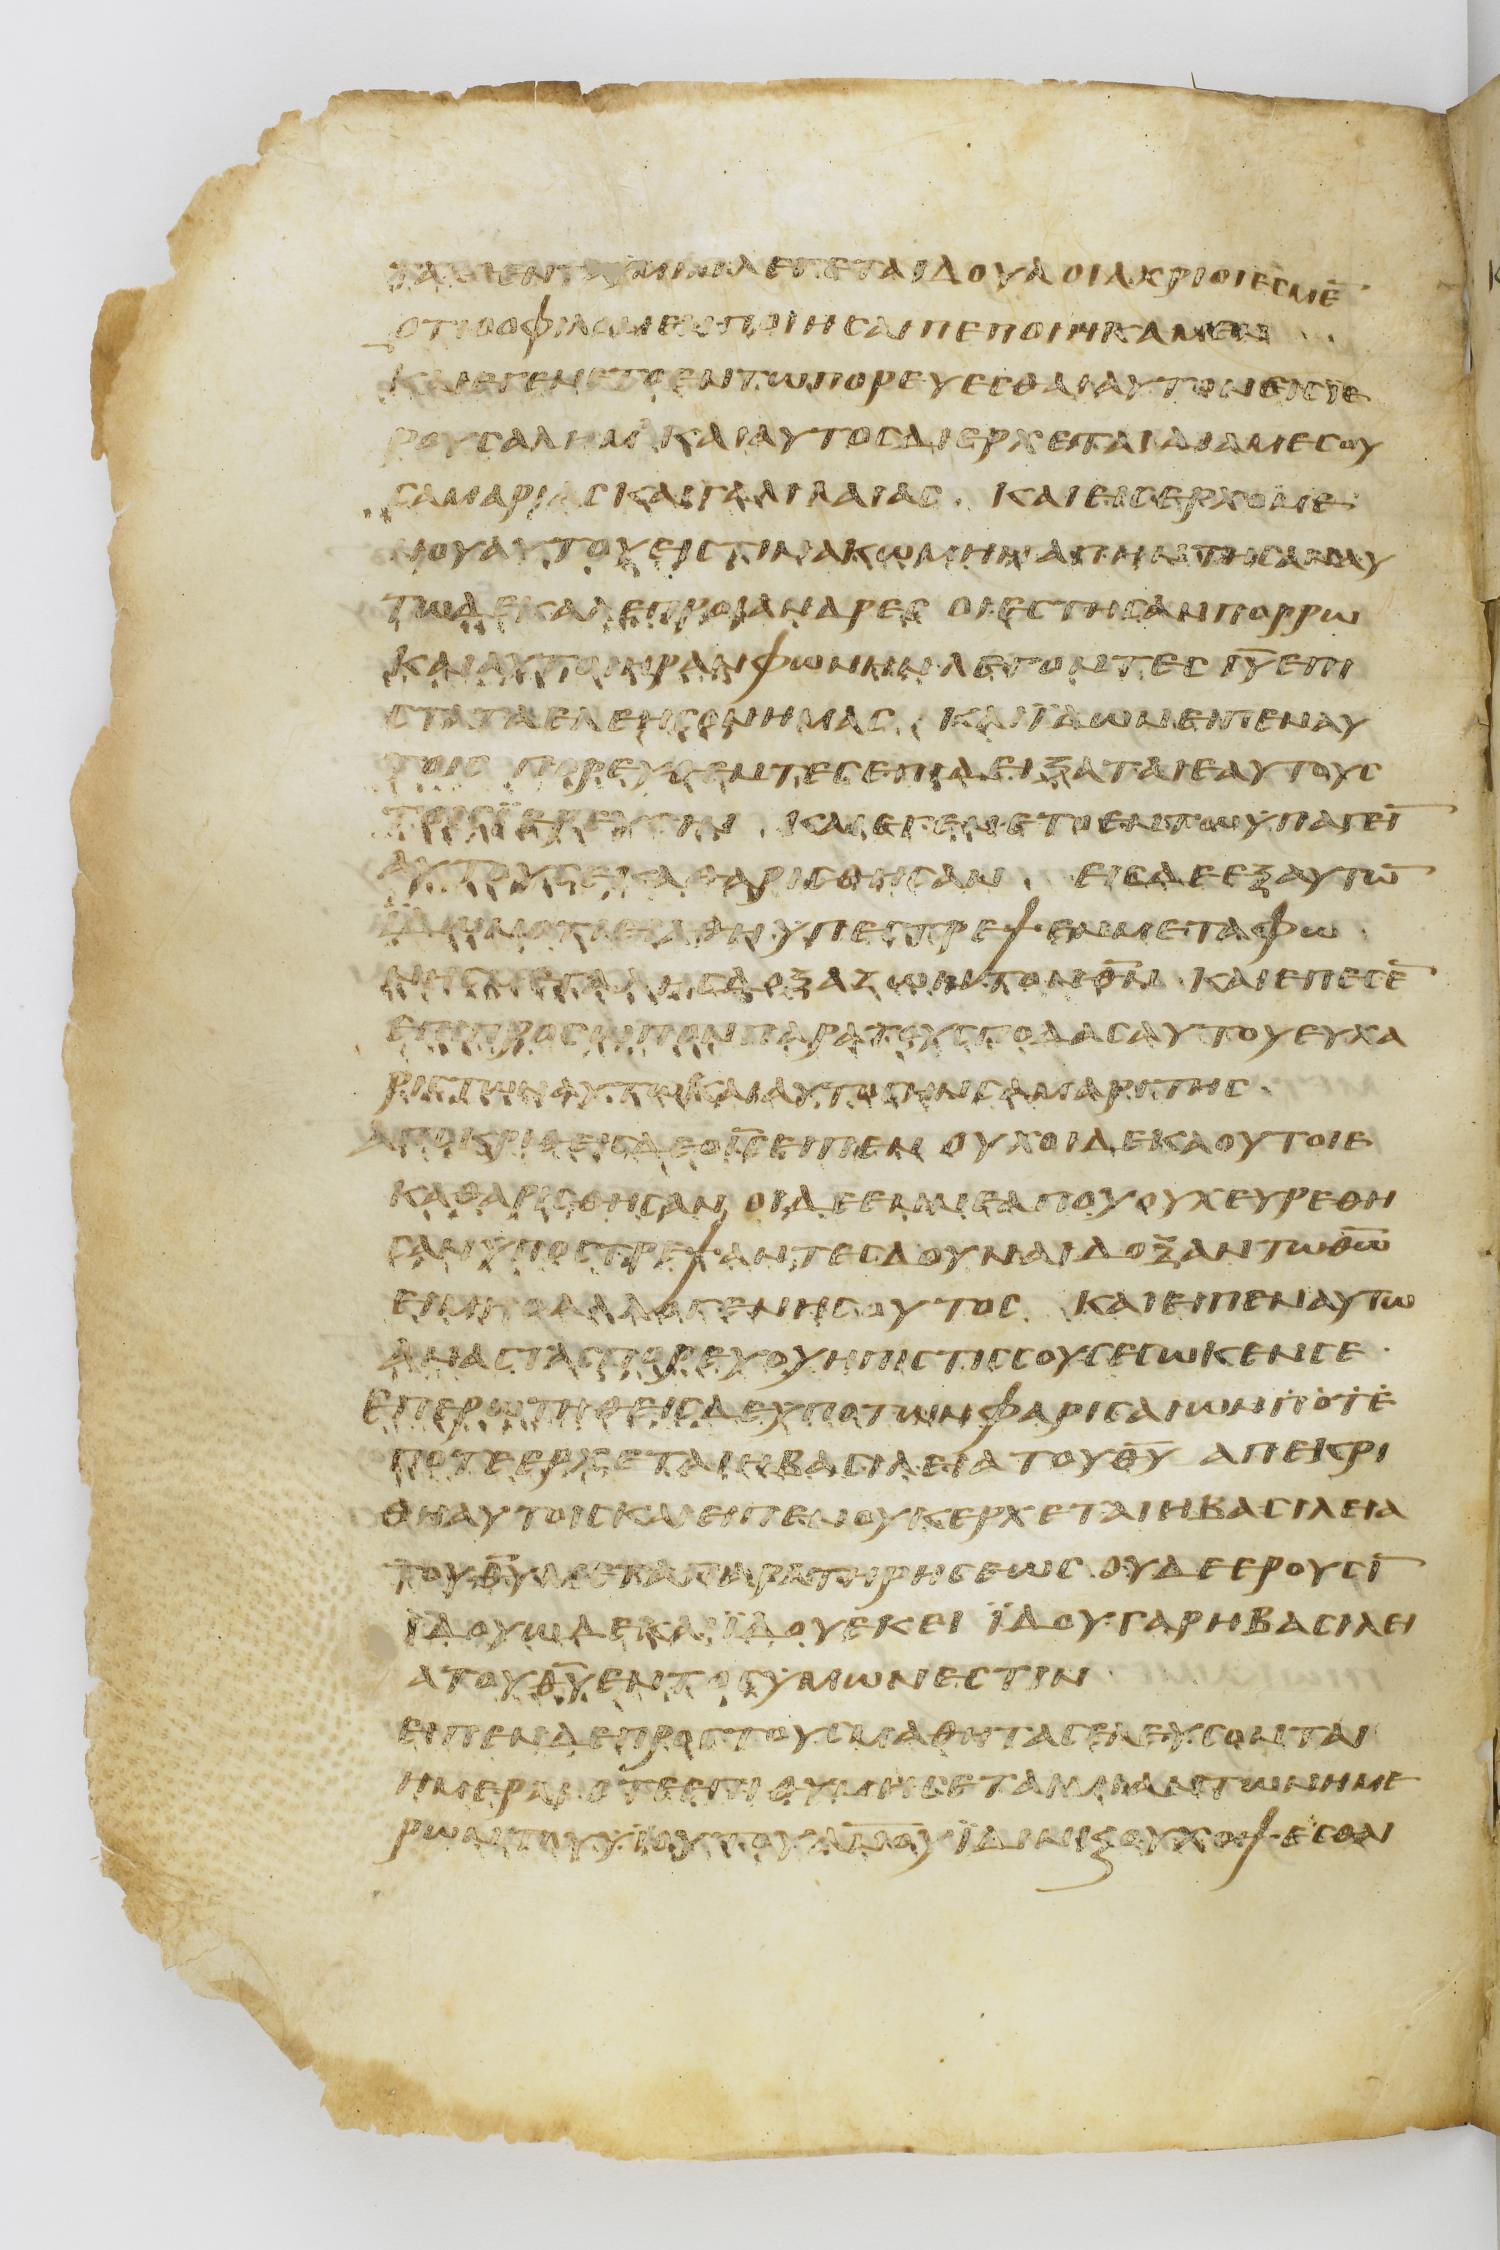 ΤΑΧΘΕΝΤΑΥΜΙΝΛΕΓΕΤΑΙΔΟΥΛΟΙΑΧΡΙΟΙΕϹΜΕ̅
ΟΤΙΟΦΙΛΟΜΕΝΠΟΙΗϹΑΙΠΕΠΟΙΗΚΑΜΕΝ
ΚΑΙΕΓΕΝΕΤΟΕΝΤΩΠΟΡΕΥΕϹΘΑΙΑΥΤΟΝΕΙϹΙΕ
ΡΟΥϹΑΛΗΜΚΑΙΑΥΤΟϹΔΙΕΡΧΕΤΑΙΔΙΑΜΕϹΟΥ
ϹΑΜΑΡΙΑϹΚΑΙΓΑΛΙΛΑΙΑϹ ΚΑΙΕΙϹΕΡΧΟΜΕ
ΝΟΥΑΥΤΟΥΕΙϹΤΙΝΑΚΩΜΗΝΑΠΗΝΤΗϹΑΝΑΥ
ΤΩΔΕΚΑΛΕΠΡΟΙΑΝΔΡΕϹΟΙΕϹΤΗϹΑΝΠΟΡΡΩ
ΚΑΙΑΥΤΟΙΗΡΑΝΦΩΝΗΝΛΕΓΟΝΤΕϹ Ι̅Υ̅ΕΠΙ
ϹΤΑΤΑΕΛΕΗϹΟΝΗΜΑϹ ΚΑΙΙΔΩΝΕΙΠΕΝΑΥ
ΤΟΙϹΠΟΡΕΥΘΕΝΤΕϹΕΠΙΔΕΙΞΑΤΑΙΕΑΥΤΟΥϹ
ΤΟΙϹΪΕΡΕΥϹΙΝ ΚΑΙΕΓΕΝΕΤΟΕΝΤΩΥΠΑΓΕΙ̅
ΑΥΤΟΥϹΕΚΑΘΑΡΙϹΘΗϹΑΝ ΕΙϹΔΕΕΞΑΥΤΩ̅
ΪΔΩΝΟΤΙΕΙΑΘΗΥΠΕϹΤΡΕΨΕΝΜΕΤΑΦΩ
ΝΗϹΜΕΓΑΛΗϹΔΟΞΑΖΩΝΤΟΝΘ̅Ν̅ ΚΑΙΕΠΕϹΕ̅
ΕΠΙΠΡΟϹΩΠΟΝΠΑΡΑΤΟΥϹΠΟΔΑϹΑΥΤΟΥΕΥΧΑ
ΡΙϹΤΩΝΑΥΤΩΚΑΙΑΥΤΟϹΗΝϹΑΜΑΡΙΤΗϹ
ΑΠΟΚΡΙΘΕΙϹΔΕΟΙ̅Ϲ̅ΕΙΠΕΝΟΥΧΟΙΔΕΚΑΟΥΤΟΙΕ
ΚΑΘΑΡΙϹΘΗϹΑΝΟΙΔΕΕΝΝΕΑΠΟΥΟΥΧΕΥΡΕΘΗ
ϹΑΝΥΠΟϹΤΡΕΨΑΝΤΕϹΔΟΥΝΑΙΔΟΞΑΝΤΩΘ̅Ω̅
ΕΙΜΗΟΑΛΛΟΓΕΝΗϹΟΥΤΟϹ ΚΑΙΕΙΠΕΝΑΥΤΩ
ΑΝΑϹΤΑϹΠΟΡΕΥΟΥΗΠΙϹΤΙϹϹΟΥϹΕϹΩΚΕΝϹΕ
ΕΠΕΡΩΤΗΘΕΙϹΔΕΥΠΟΤΩΝΦΑΡΙϹΑΙΩΝΠΟΤΕ
ΠΟΤΕΕΡΧΕΤΑΙΗΒΑϹΙΛΕΙΑΤΟΥΘ̅Υ̅ ΑΠΕΚΡΙ
ΘΗΑΥΤΟΙϹΚΑΙΕΙΠΕΝΟΥΚΕΡΧΕΤΑΙΗΒΑϹΙΛΕΙΑ
ΤΟΥΘ̅Υ̅ΜΕΤΑΠΑΡΑΤΗΡΗϹΕΩϹΟΥΔΕΕΡΟΥϹΙ̅
ΪΔΟΥΩΔΕΚΑΙΪΔΟΥΕΚΕΙΪΔΟΥΓΑΡΗΒΑϹΙΛΕΙ
ΑΤΟΥΘ̅Υ̅ΕΝΤΟϹΥΜΩΝΕϹΤΙΝ
ΕΙΠΕΝΔΕΠΡΟϹΤΟΥϹΜΑΘΗΤΑϹΕΛΕΥϹΟΝΤΑΙ
ΗΜΕΡΑΙΟΤΕΕΠΙΘΥΜΗϹΕΤΑΙΜΙΑΝΤΩΝΗΜΕ